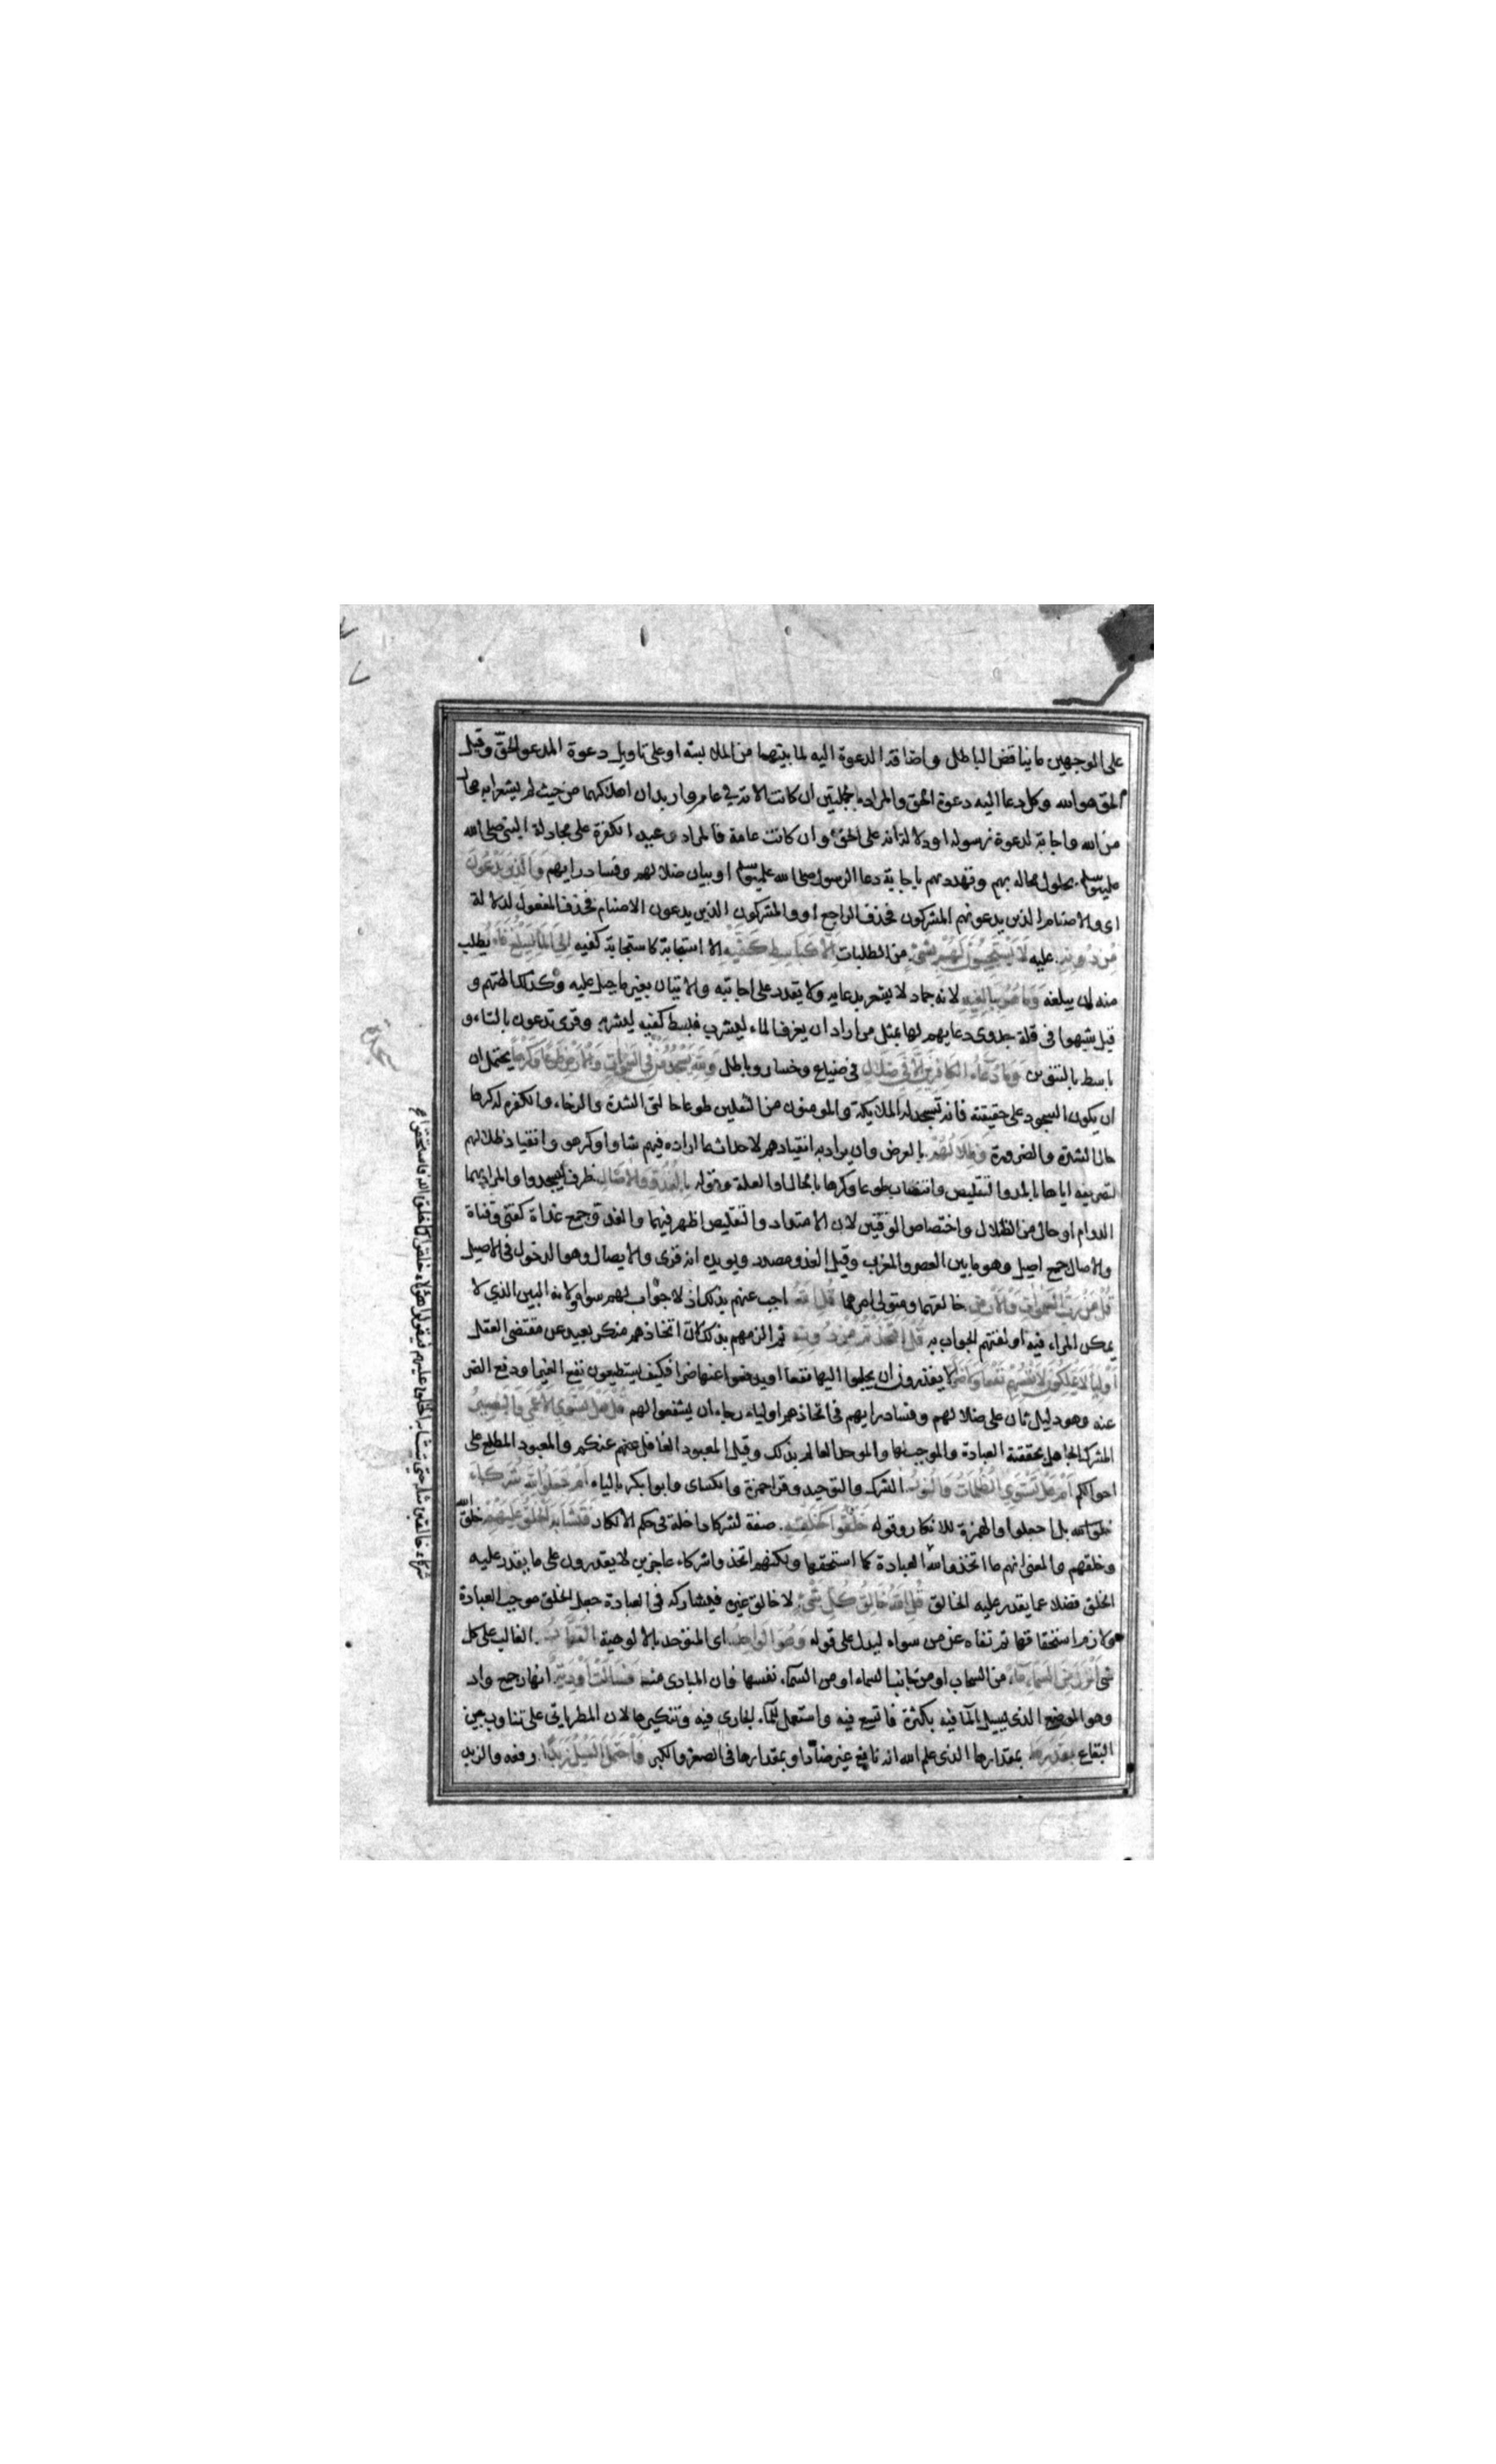 على الوجهين ما يناقض الباطل واضافة الدعوة اليه لما بينهما من الملابسة او على تاويل دعوة المدعو الحق وقيل
الحق هو الله وكل دعا اليه دعوة الحق والمراد بالجملتين ان كانت الاية في عامر واربد ان اهلاكهما من حيث لم يشعرا به محال
من الله واجابة لدعوة رسوله او دلالة انه على الحق وان كانت عامة فالمراد وعيد الكفرة على مجادلة النبي صلى الله
عليه وسلم بحلول محاله بهم وتهديدهم باجابة دعا الرسول صلى الله عليه وسلم او بيان ضلالهم وفساد رايهم والذين يدعون
اى والاصنام الذين يدعونهم المشركون فحذف الراجع او والمشركون الذين يدعون الاصنام فحذف المفعول لدلالة
من دونه عليه لا يستجيبون لهم بشئ من الطلبات الا كباسط كفيه الا استجابة كاستجابة كفيه الى الماء ليبلغ فاه يطلب
منه ان يبلغه وما هو ببالغه لانه جماد لا يشعر بدعايه ولا يقدر على اجابته والاتيان بغير ما جبل عليه وكذلك الهتهم و
قيل شبهوا فى قلة جدوى دعايهم لها بمثل من اراد ان يغرف الماء ليشرب فبسط كفيه ليشربه وقرى تدعون بالتاء و
باسط بالتنوين وما دعاء الكافرين الا فى ضلال فى ضياع وخسار وباطل ولله يسجد من فى السموات والارض طوعا وكرها يحتمل ان
ان يكون السجود على حقيقته فانه تسجد له الملايكة والمومنون من الثقلين طوعا حالتى الشدة والرخاء والكفره له كرها
حال الشدة والضرورة وظلالهم بالعرض وان يراد به انقيادهم لاحداث ما اراده فيهم شاوا او كرهوا وانقياد ظلالهم
لتصريفه اياها بالمد والتقليص وانتصاب طوعا وكرها بالحال او العلة وقوله بالغدو والاصال ظرف ليسجدوا والمراد بهما
الدوام او حال من الظلال واختصاص الوقتين لان الامتداد والتقليص اظهر فيهما والغدو جمع غداة كقنى وقناة
والاصال جمع اصيل وهو ما بين العصر والمغرب وقيل الغدو مصدر ويويده انه قرى والايصال وهو الدخول فى الاصيل
قل من رب السموات والارض خالقهما ومتولى امرهما قل الله اجب عنهم بذلك اذ لا جواب لهم سواه ولانه البين الذي لا
يمكن المراء فيه او لقنهم الجواب به قل افاتخذتم من دونه ثم الزمهم بذلك لان اتخاذهم منكر بعيد عن مقتضى العقل
اولياء لا يملكون لانفسهم نفعا ولا ضرا لا يقدرون ان يجلبوا اليها نفعا او يدفعوا عنها ضرا فكيف يستطيعون نفع الغير او دفع الضر
عنه وهو دليل ثان على ضلالهم وفساد رايهم فى اتخاذهم اولياء رجاء ان يشفعوا لهم قل هل يستوي الاعمى والبصير
المشرك الجاهل بحقيقة العبادة والموجب لها والموحد العالم بذلك وقيل المعبود الغافل عنكم والمعبود المطلع على
احوالكم ام هل تستوي الظلمات والنور الشرك والتوحيد وقرا حمزة والكساى وابو بكر بالياء ام جعلوا لله شركاء
بل اجعلوا والهمزة للانكار وقوله خلقوا كخلقه صفة لشركا داخلة فى حكم الانكار فتشابه الخلق عليهم خلق الله
وخلقهم والمعنى انهم ما اتخذوا لله العبادة كما استحقها ولكنهم اتخذوا شركاء عاجزين لا يقدرون على ما يقدر عليه
الخلق فضلا عما يقدر عليه الخالق قل الله خالق كل شئ لا خالق غيره فيشاركه فى العبادة جعل الخلق موجب العبادة
ولازم استحقاقها ثم نفاه عن من سواه ليدل على قوله وهو الواحد اى المتوحد بالالوهية القهار الغالب على كل
شى انزل من السماء ماء من السحاب او من جانب السماء او من السماء نفسها فان المبادى منه فسالت اودية انهار جمع واد
وهو الموضع الذى يسيل الماء فيه بكثرة فاتسع فيه واستعمل للماء الجارى فيه وتنكيرها لان المطر ياتى على تناوب بين
البقاع بقدرها بمقدارها الذى علم الله انه نافع غير ضار او بمقدارها فى الصغر والكبر فاحتمل السيل زبدا رفعه والزبد
شركاء خالقين مثله حتى يتشابه الخلق عليهم فيقولوا هؤلاء خلقوا كما خلق الله فاستحقوا